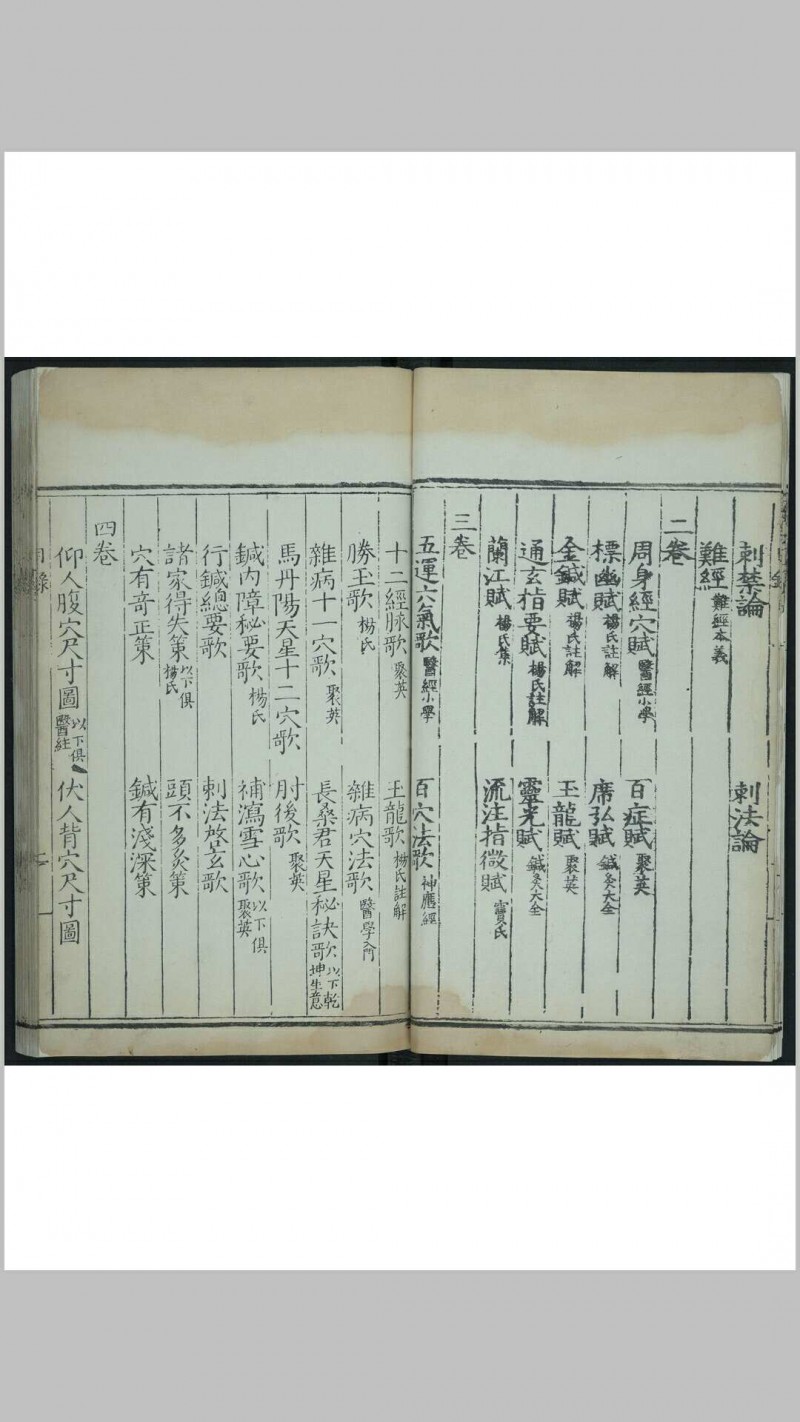 刺禁論 刺法論
難經 難經本義
二卷
周身經穴賦 醫經小學 百症賦 聚英
標幽賦 楊氏註解 席弘賦 鍼灸大全
金鍼賦 楊氏註解 玉龍賦 聚英
通玄指要賦 楊氏註解 靈光賦 鍼灸大全
蘭江賦 楊氏集 流注指微賦 竇氏
三卷
五運六氣歌 醫經小學 百穴法歌 神應經
十二經脉歌 聚英 玉龍歌 楊氏註解
勝玉歌 楊氏 雜病穴法歌 醫學入門
雜病十一穴歌 聚英 長桑君天星秘訣歌 以下乾坤生意
馬丹陽天星十二穴歌 肘後歌 聚英
鍼內障秘要歌 楊氏 補瀉雪心歌 以下俱聚英
行鍼總要歌 刺法啓玄歌
諸家得失策 以下俱楊氏 頭不多灸策
穴有奇正策 鍼有淺深策
四卷
仰人腹穴尺寸圖 以下俱醫經 伏人背穴尺寸圖
目錄